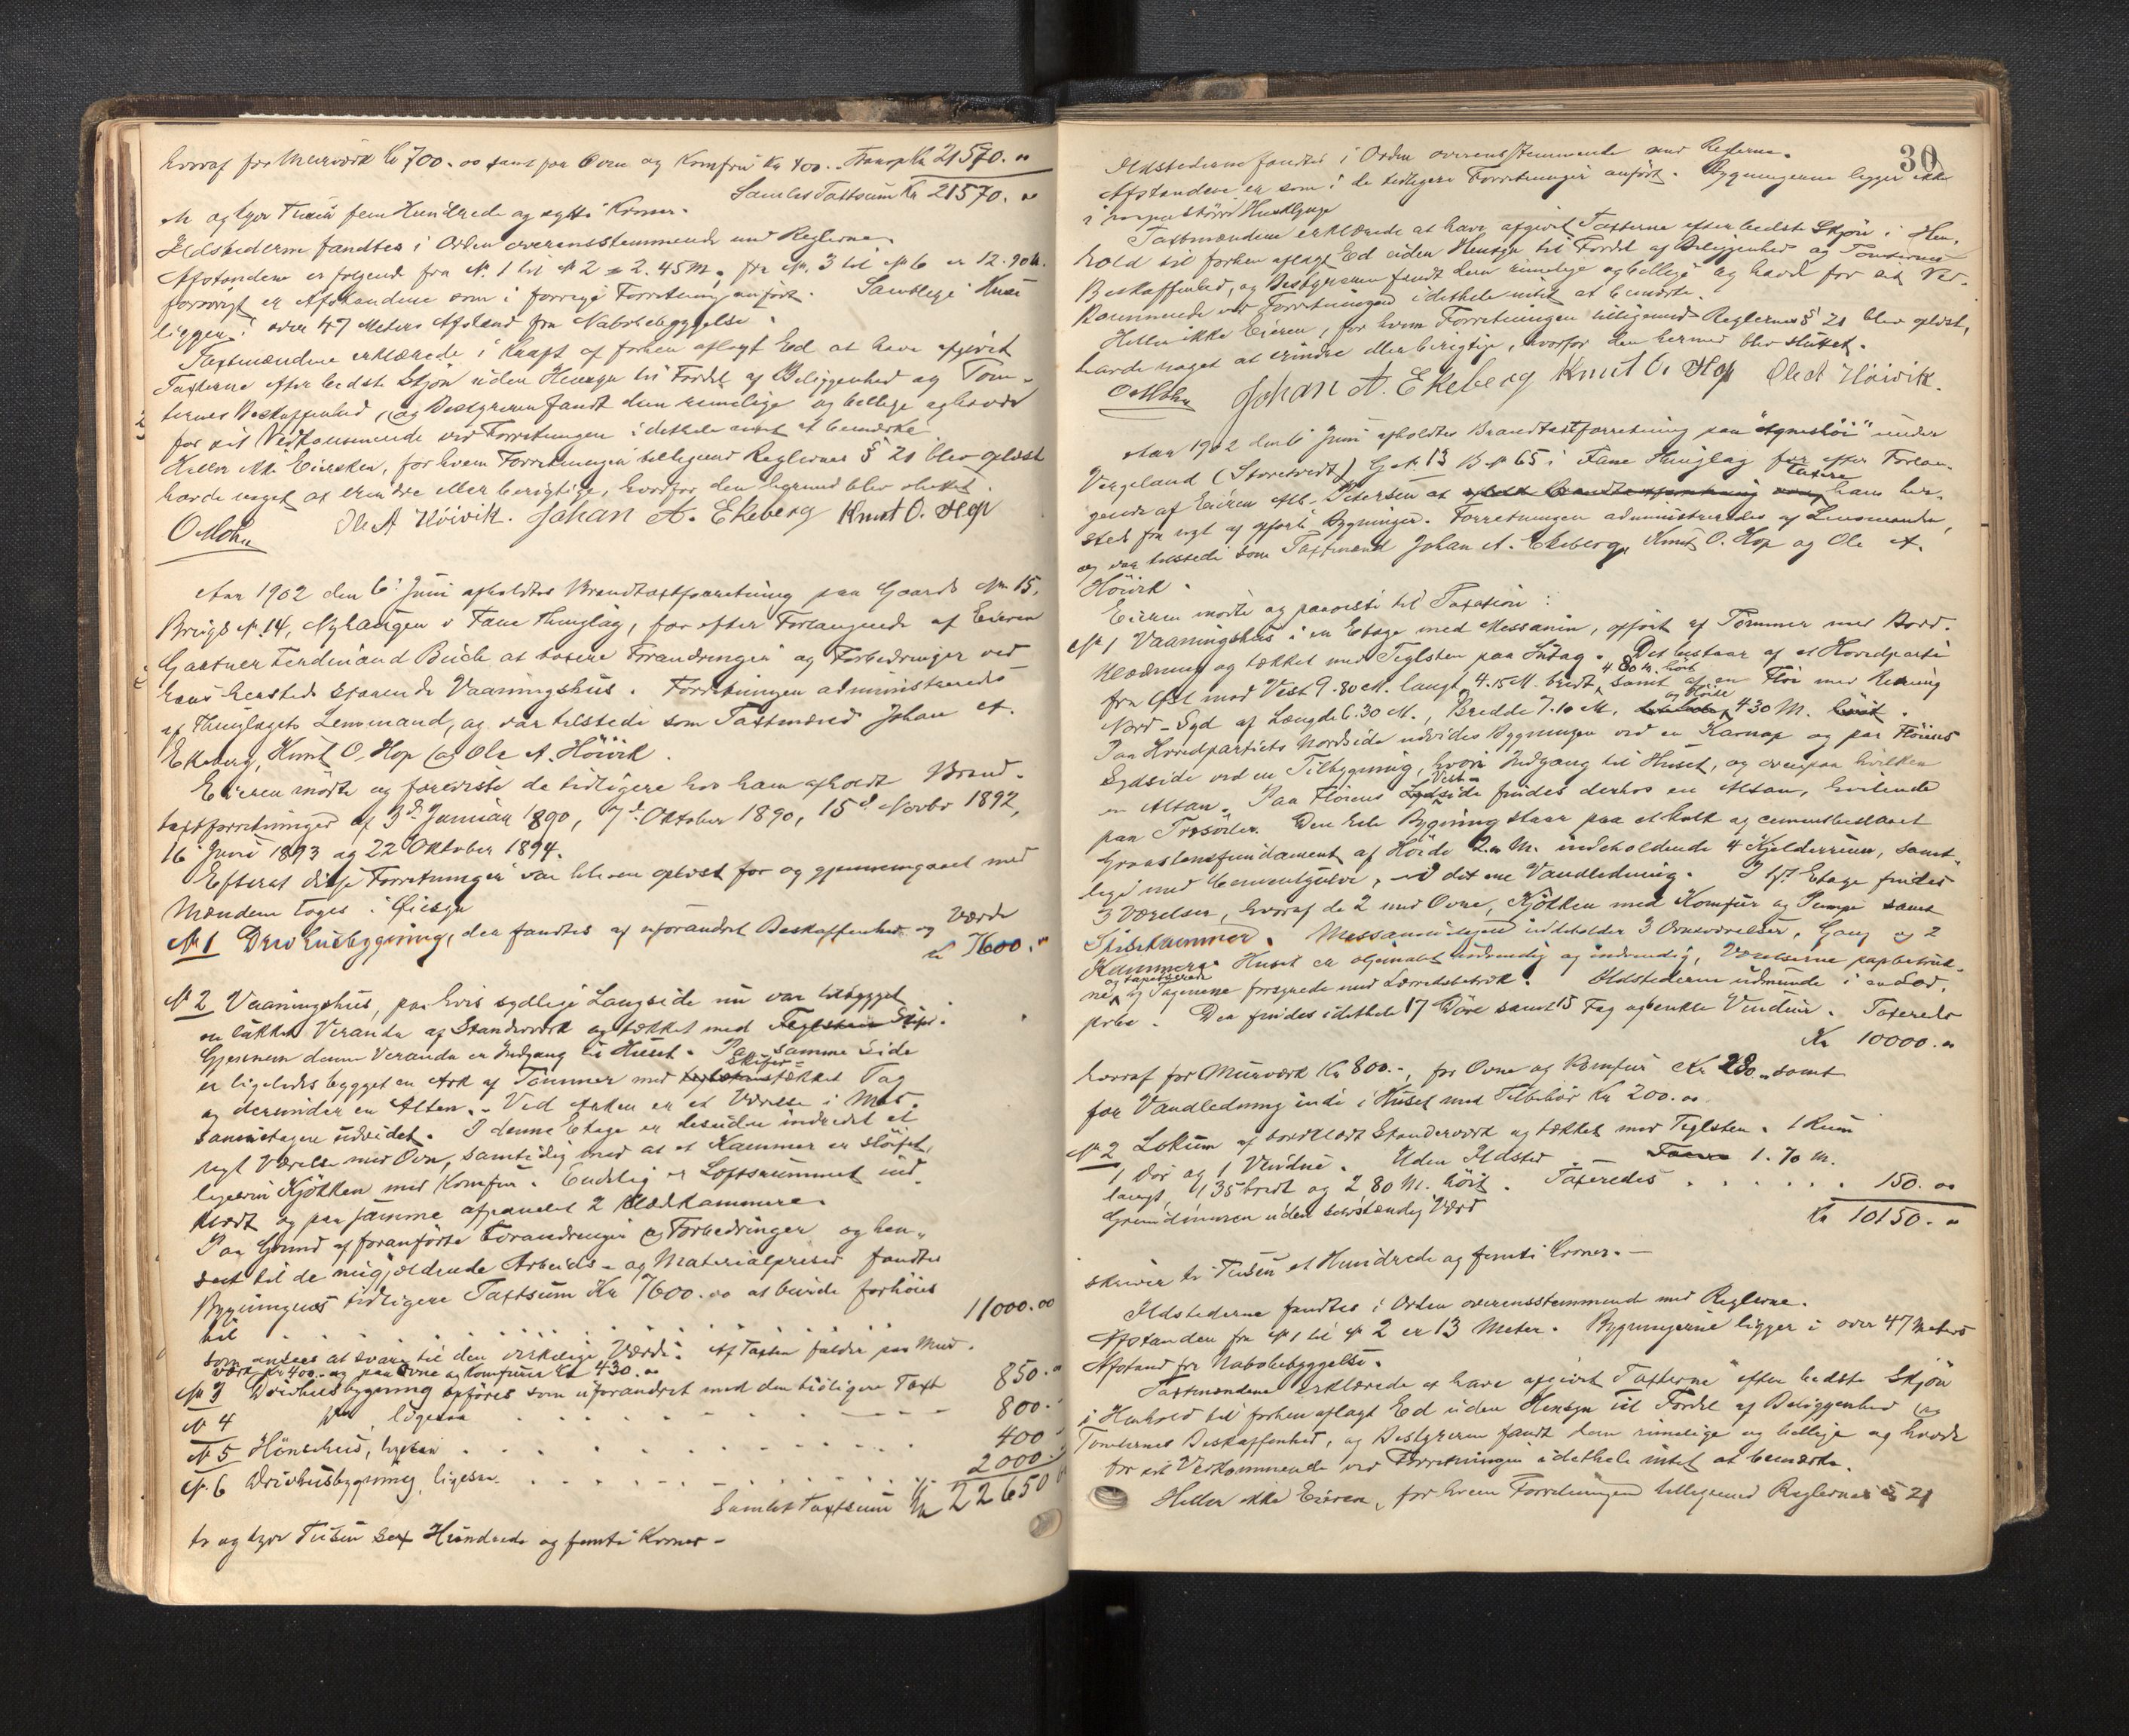 hvoraf for Murværk Kr 700.00 samt paa Ovne og Komfur Kr 400. Transp Kr 21570.00
Samlet Taxtsum Kr 21570.00
et og tyve Tusen fem Hundrede og sytti Kroner.
Ildstederne fandtes i Orden overensstemmende med Reglerne.
Afstandene er følgende fra No. 1 til No 2 = 2.45 M, fra No. 3 til No 6 er 12.90 M.
forøvrigt er Afstandene som i forrige Forretning anført. Samtlige Huse
ligger i over 47 Meters Afstand fra Nabobebyggelse.
Taxtmændene erklærede i Kraft af forhen aflagt Ed at have afgivet
Taxterne efter bedste Skjøn uden Hensyn til Fordel af Beliggenhed og Tom-
ternes Beskaffenhed, og Bestyreren fandt dem rimelige og billige og havde
for sit Vedkommende ved Forretningen i dethele intet at bemærke.
Heller ikke Eiersken, for hvem Forretningen tilligemed Reglernes § 21 blev oplæst
havde noget at erindre eller berigtige, hvorfor den hermed blev sluttet.
O Mohn Ole A Höivik. Johan A. Ekeberg Knut O. Hop
Aar 1902 den 6. Juni afholdtes Brandtaxtforretning paa Gaards No. 15,
Brugs No. 14, Nyhaugen i Fane Thinglag, for efter Forlangende af Eieren
Gartner Ferdinand Buch at taxere Forandringer og Forbedringer ved
hans hersteds staaende Vaaningshus. Forretningen administreredes
af Thinglagets Lensmand, og var tilstede som Taxtmænd Johan A.
Ekeberg, Knut O. Hop og Ole A. Höivik.
Eieren mødte og foreviste de tidligere hos ham afholdt Brand-
taxtforretninger af 3d Januar 1890, 7d Oktober 1890, 15d Novbr 1892,
16 Juni 1893 og 22 Oktober 1894.
Efterat disse Forretninger var bleven oplæst for og gjennemgaaet med
Mændene toges i Øiesyn
No 1 Drivhusbygning, der fandtes af uforandret Beskaffenhed og Værdi
Kr 7600.00
No 2 Vaaningshus, paa hvis sydlige Langside nu var tilbygget
en lukket Veranda af Standerværk og tækket med Teglsten Skifer.
Gjennem denne Veranda er Indgang til Huset. Paa samme Side
er ligeledes bygget en Ark af Tømmer med skifertækket Tag
og derunder en Altan. Ved Arken er et Værelse i Mes-
saninetagen udvidet. I denne Etage er desuden indredet et
nyt Værelse med Ovn, samtidig med at et Kammer er sløifet,
ligesom Kjøkken med Komfur. Endelig er Loftsrummet ind-
klædt og paa samme afpanelet 2 Klædkammere.
Paa Grund af foranførte Forandringer og Forbedringer og hen-
seet til de nugjældende Arbeids- og Materialpriser fandtes
Bygningens tidligere Taxtsum Kr 7600.00 at burde forhøies
til . . . . . . . . . . . . 11000.00
som ansees at svare til den virkelige Værdi. Af Taxten falder paa Mur-
værk Kr 400.- og paa Ovne og Komfurer Kr 430.00
No 3 Drivhusbygning opføres som uforandret med den tidligere Taxt 850.00
No 4 do, ligesaa . . . . . . 800.-
No 5 Hönsehus, ligesaa . . . . . . 400.-
No. 6 Drivhusbygning, ligesaa . . . . . . 2000.-
Samlet Taxtsum Kr 22650.00
to og tyve Tusen sex Hundrede og femti Kroner -
30
Ildstederne fandtes i Orden overensstemmende med Reglerne.
Afstandene er som i de tidligere Forretninger anført. Bygningerne ligger ikke
i sammenstödt Husklynge
Taxtmændene erklærede at have afgivet Taxterne efter bedste Skjøn i Hen-
hold til forhen aflagt Ed uden Hensyn til Fordel af Beliggenhed og Tomternes
Beskaffenhed, og Bestyreren fandt dem rimelige og billige og havde for sit Ved-
kommende ved Forretningen i dethele intet at bemærke.
Heller ikke Eieren, for hvem Forretningen tilligemed Reglernes § 21 blev oplæst,
havde noget at erindre eller berigtige, hvorfor den hermed blev sluttet.
O Mohn Johan A. Ekeberg Knut O. Hop Ole A Höivik.
Aar 1902 den 6 Juni afholdtes Brandtaxtforretning paa "Agneshöi" under
Vergeland (Storetvedt) G. No. 13 B. No 65 i Fane Thinglag for efter Forlan-
gende af Eieren Petersen at taxere hans her-
steds fra nyt af opførte Bygninger. Forretningen administreredes af Lensmanden,
og var tilstede som Taxtmænd Johan A. Ekeberg, Knut O. Hop og Ole A.
Höivik.
Eieren mødte og paaviste til Taxation:
No 1 Vaaningshus i en Etage med Messanin, opført af Tømmer med Bord-
klædning og tækket med Teglsten paa Sutag. Det bestaar af et Hovedparti
fra Øst mod Vest 9.80 M. langt 4.15 M. bredt 4.80 M. höit samt af en Flöi med Retning
Nord-Syd af Længde 6.30 M., Bredde 7.10 M, og Höide 4.30 M.
Paa Hovedpartiets Nordside udvides Bygningen ved en Karnap og paa Flöiens
Sydside ved en Tilbygning, hvori Indgang til Huset, og ovenpaa hvilken
en Altan. Paa Flöiens Vestside findes derhos en Altan, hvilende
paa Træsöiler. Den hele Bygning staar paa et kalk og cementbeslaaet
Graastensfundament af Höide 2.00 M. indeholdende 4 Kjelderrum, samt-
lige med Cementgulve, i det ene Vandledning. I 1ste Etage findes
3 Værelser, hvoraf de 2 med Ovne, Kjökken med Komfur og Pumpe samt
Spisekammer. Messaninetagen indeholder 3 Ovnsværelser, Gang og 2
Kammere. Huset er oljemalet udvendig og indvendig, Værelserne papbetruk-
ne og tapetserede og Tagene forsynede med Lærretsbetræk. Ildstederne udmunde i en Lod-
pibe. Der findes i dethele 17 Döre samt 15 Fag og enkle Vinduer. Taxeredes
Kr 10000.00
hvoraf for Murværk Kr 800.-, for Ovne og Komfur Kr 280.- samt
for Vandledning inde i Huset med Tilbehör Kr 200.00
No 2 Lokum af bordklædt Standerværk og tækket med Teglsten. 1 Rum
1 Dør og 1 Vindue. Uden Ildsted 1.70 M.
langt, 1.35 bredt og 2.80 M. höit. Taxeredes . . . . . . 150.00
Grundmuren uden selvstændig Værd
Kr 10150.00
skriver ti Tusen et Hundrede og femti Kroner. -
Ildstederne fandtes i Orden overensstemmende med Reglerne.
Afstanden fra No 1 til No 2 er 13 Meter. Bygningerne ligger i over 47 Meters
Afstand fra Nabobebyggelse.
Taxtmændene erklærede at have afgivet Taxterne efter bedste Skjön
i Henhold til forhen aflagt Ed uden Hensyn til Fordel af Beliggenhed og
Tomternes Beskaffenhed, og Bestyreren fandt dem rimelige og billige og havde
for sit Vedkommende ved Forretningen i dethele intet at bemærke.
Heller ikke Eieren, for hvem Forretningen tilligemed Reglernes § 21